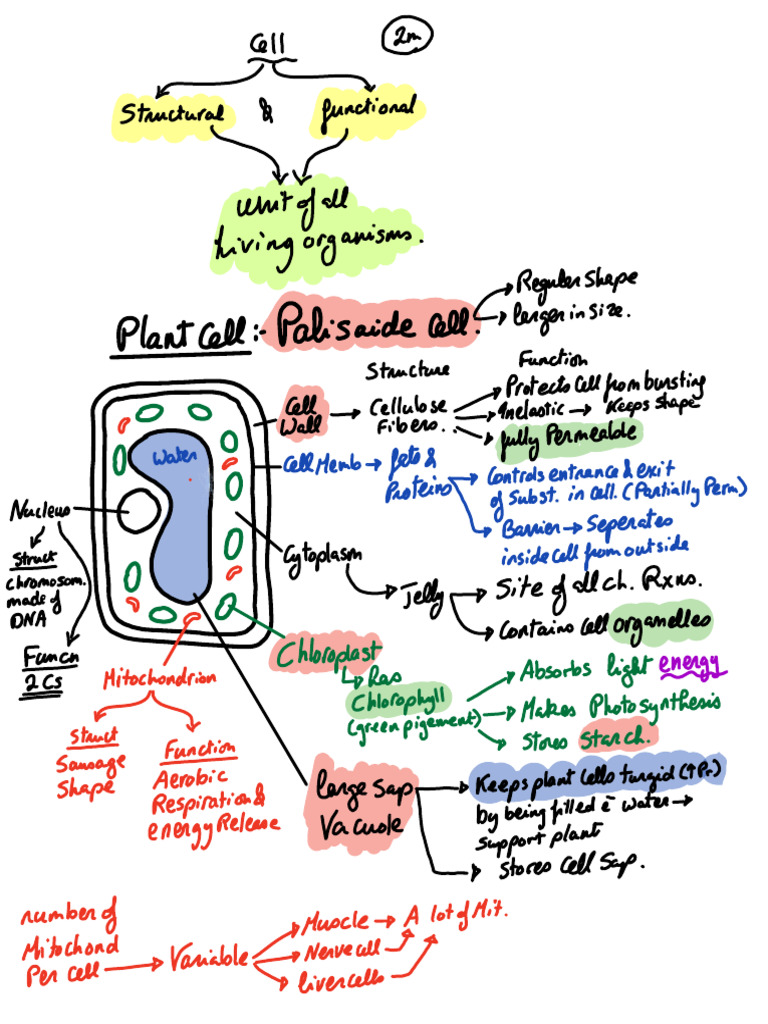 Cell
2m
Structural & functional
Unit of all
Living organisms.
Plant Cell:- Palisaide Cell.
Regular Shape
larger in Size.
Structure
Function
Cell
Wall
Cellulose
Fibers..
Protects Cell from bursting
Inelastic → Keeps Shape
fully Permeable
Water
Cell Memb → fats &
Proteins
Controls entrance & exit
of Subst. in cell. (Partially Perm)
Barrier → Seperates
inside cell from outside
Nucleus
Struct
Chromosom.
made of
DNA
Funcn
2 Cs
Cytoplasm
Jelly
Site of all ch. Rxns.
Contains Cell organelles
Chloroplast
Has
Chlorophyll
(green pigement)
Absorbs light energy
Makes Photosynthesis
Stores Starch.
Mitochondrion
Struct
Sausage
Shape
Function
Aerobic
Respiration &
energy Release
large Sap
Vacuole
Keeps plant Cells turgid (↑Pr)
by being filled c̄ water →
support plant
Stores Cell Sap.
number of
Mitochond
Per cell → Variable
Muscle → A lot of Mit.
Nerve cell
liver cells